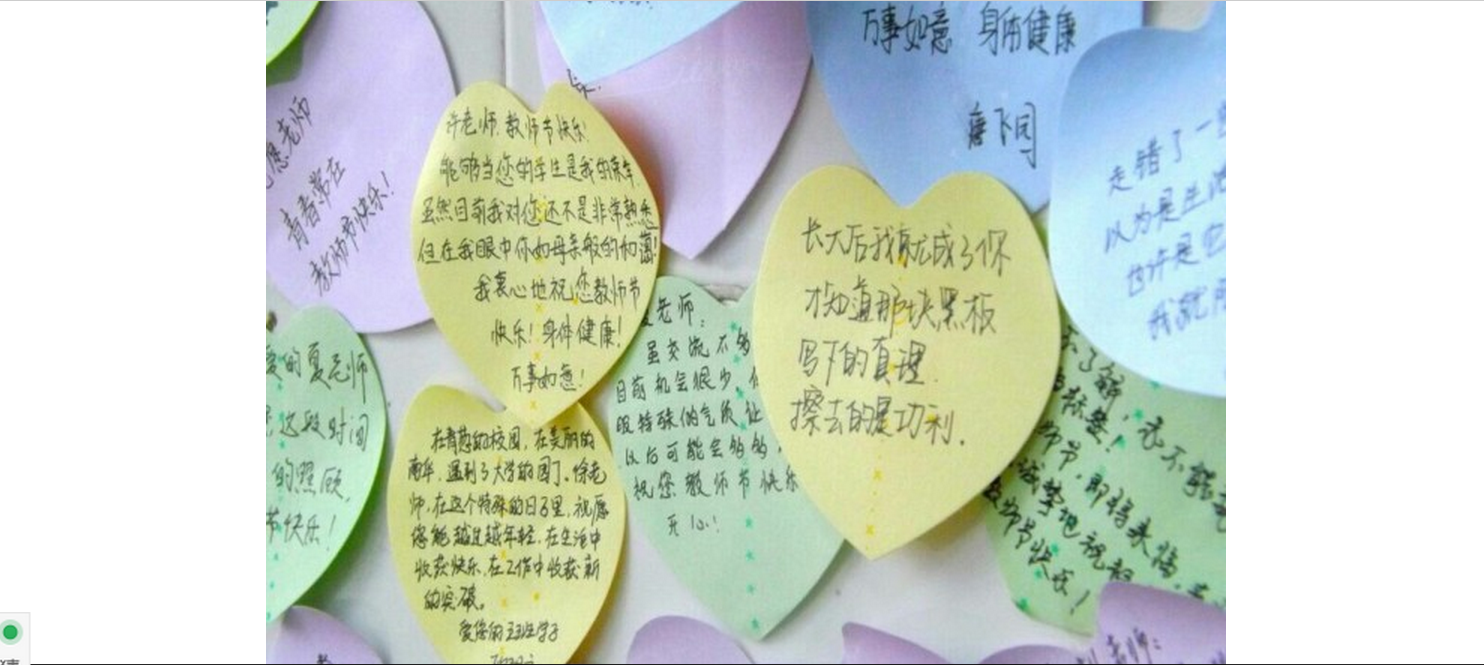 万事如意 身体健康
唐飞同
您老师
青春常在
教师节快乐!
许老师,教师节快乐!
能够当您的学生是我的荣幸
虽然目前我对您还不是非常熟悉
但在我眼中你如母亲般的和蔼!
我衷心地祝您教师节
快乐!身体健康!
万事如意!
长大后我就成了你
才知道那块黑板
写下的真理
擦去的是功利.
走错了一
以为是生活
也许是它
我就
老师:
虽交流不够
目前机会很少,
眼特殊的气质让
以后可能会够够,
祝您教师节快乐
开心!
爱的夏老师
这段时间
的照顾,
节快乐!
在青葱的校园,在美丽的
南华,遇到了大学的園门。徐老
师,在这个特殊的日子里,祝愿
您能越过越年轻,在生活中
收获快乐,在工作中收获新
的突破。
爱您的 班学子
了解,
标整!
师节,即将来临,
诚挚地祝福
教师节快乐!
老师: